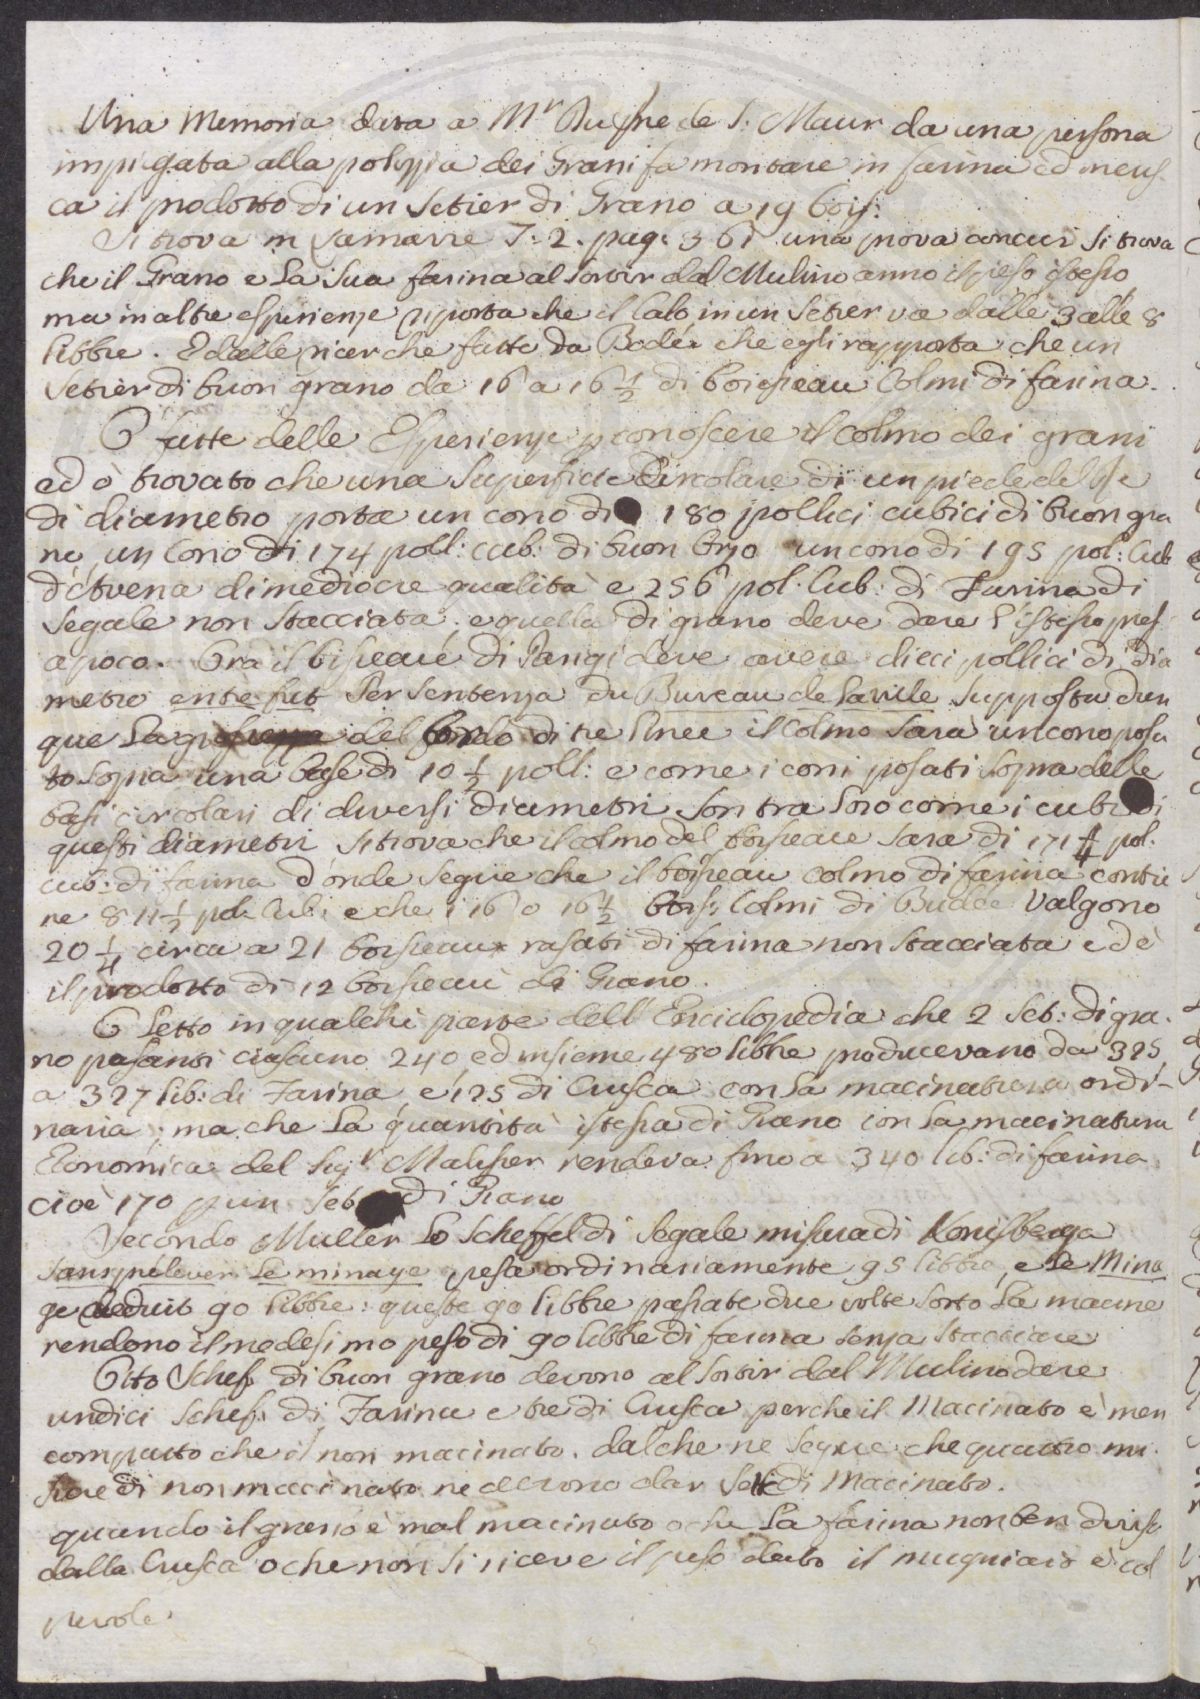 Una Memoria data a Mr Dupre de S. Maur da una persona
impiegata alla polizia dei Grani fa montare in farina ed in crus-
ca il prodotto di un Setier di Grano a 19 bois:
Si trova in Lamarre T. 2. pag: 361 una prova con cui si trova
che il Grano e la sua farina al sortir dal Mulino anno il peso istesso
ma in altre esperienze riporta che il calo in un Setier va dalle 3 alle 8
libbre. E dalle ricerche fatte da Budée che egli rapporta che un
Setier di buon grano da 16 a 16 1/2 di boisseau Colmi di farina.
O fatte delle Esperienze p conoscere il colmo dei grani
ed ò trovato che una Superficie Circolare di un piede del Re
di diametro porta un cono di 180 pollici cubici di buon gra
no, un Cono di 174 poll: cub: di buon Orzo un cono di 195 pol: Cub
d'Avena di mediocre qualità e 256 pol. Cub: di Farina di
Segale non Stacciata, e quella di grano deve dare l'istesso pres-
a poco. Ora il bisseau di Parigi deve avere dieci pollici di dia
metro entre fut Per Sentenza du Bureau de la ville. Supposta dun
que la del bordo di tre linee il Colmo Sarà un cono posa
to sopra una base di 10 1/2 poll: e come i coni posati sopra delle
basi circolari di diversi diametri Son tra loro come i cubi di
questi diametri si trova che il colmo del boisseau sara di 171 1/4 pol.
cub: di farina d'onde segue che il boisseau colmo di farina contie
ne 811 1/2 pol: Cub: e che i 16 o 16 1/2 bois: Colmi di Budée Valgono
20 1/4 circa a 21 boisseaux rasati di farina non stacciata ed è
il prodotto di 12 boisseau di Grano.
O Letto in qualche parte dell'Enciclopedia che 2 Set: di gra-
no pesanti ciascuno 240, ed insieme 480 libbre producevano da 325
a 327 lib: di Farina, e 125 di Crusca con la macinatura ordi-
naria; ma che la quantità istessa di Grano con la macinatura
Economica del Sigr Malisser rendeva fino a 340 lib: di farina
cioè 170 p un Set di Grano
Secondo Muller lo Scheffel di Segale misura di Konisberga
sans prelever le minage pesa ordinariamente 95 libbre, e le Mina
ge deduit 90 libbre: queste 90 libbre passate due volte sotto la macine
rendono il medesimo peso di 90 libbre di farina senza stacciare
Otto Schef di buon grano devono al sortir dal Mulino dare
undici Schef: di Farina e tre di Crusca perche il Macinato è men
compatto che il non macinato. dal che ne segue che quattro mi-
sure di non macinato ne devono dar Sette di Macinato.
quando il grano è mal macinato o che la farina non ben divisa
dalla Crusca o che non si riceve il peso dato il mugniaio è col
pevole.